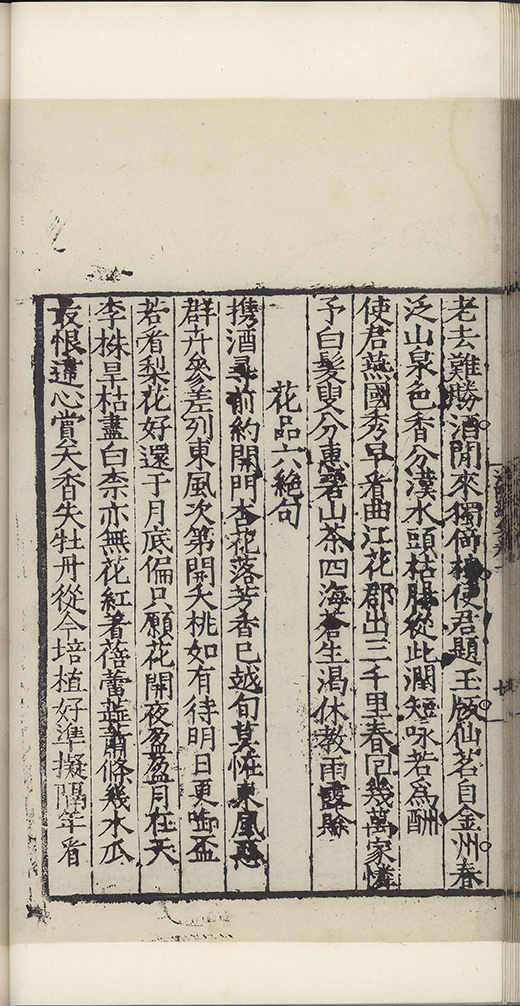 老去難勝酒閒來獨尙使君題玉版仙茗自金州春
泛山泉色香分漢水頭枯腸從此潤短咏若爲酬
使君燕國秀早看曲江花郡出三千里春回幾萬家憐
予白髮叟分惠碧山茶四海蒼生渴休教雨露賒
花品六絶句
携酒尋前約開門杏花落芳香已越旬莫怪東風惡
群卉參差列東風次第開夭桃如有待明日更啣盃
若看梨花好還于月底偏只願花開夜盈盈月在天
李株早枯盡白柰亦無花紅著蓓蕾蕋蕭條幾水瓜
最恨違心賞天香失牡丹從今培植好準擬隔年看